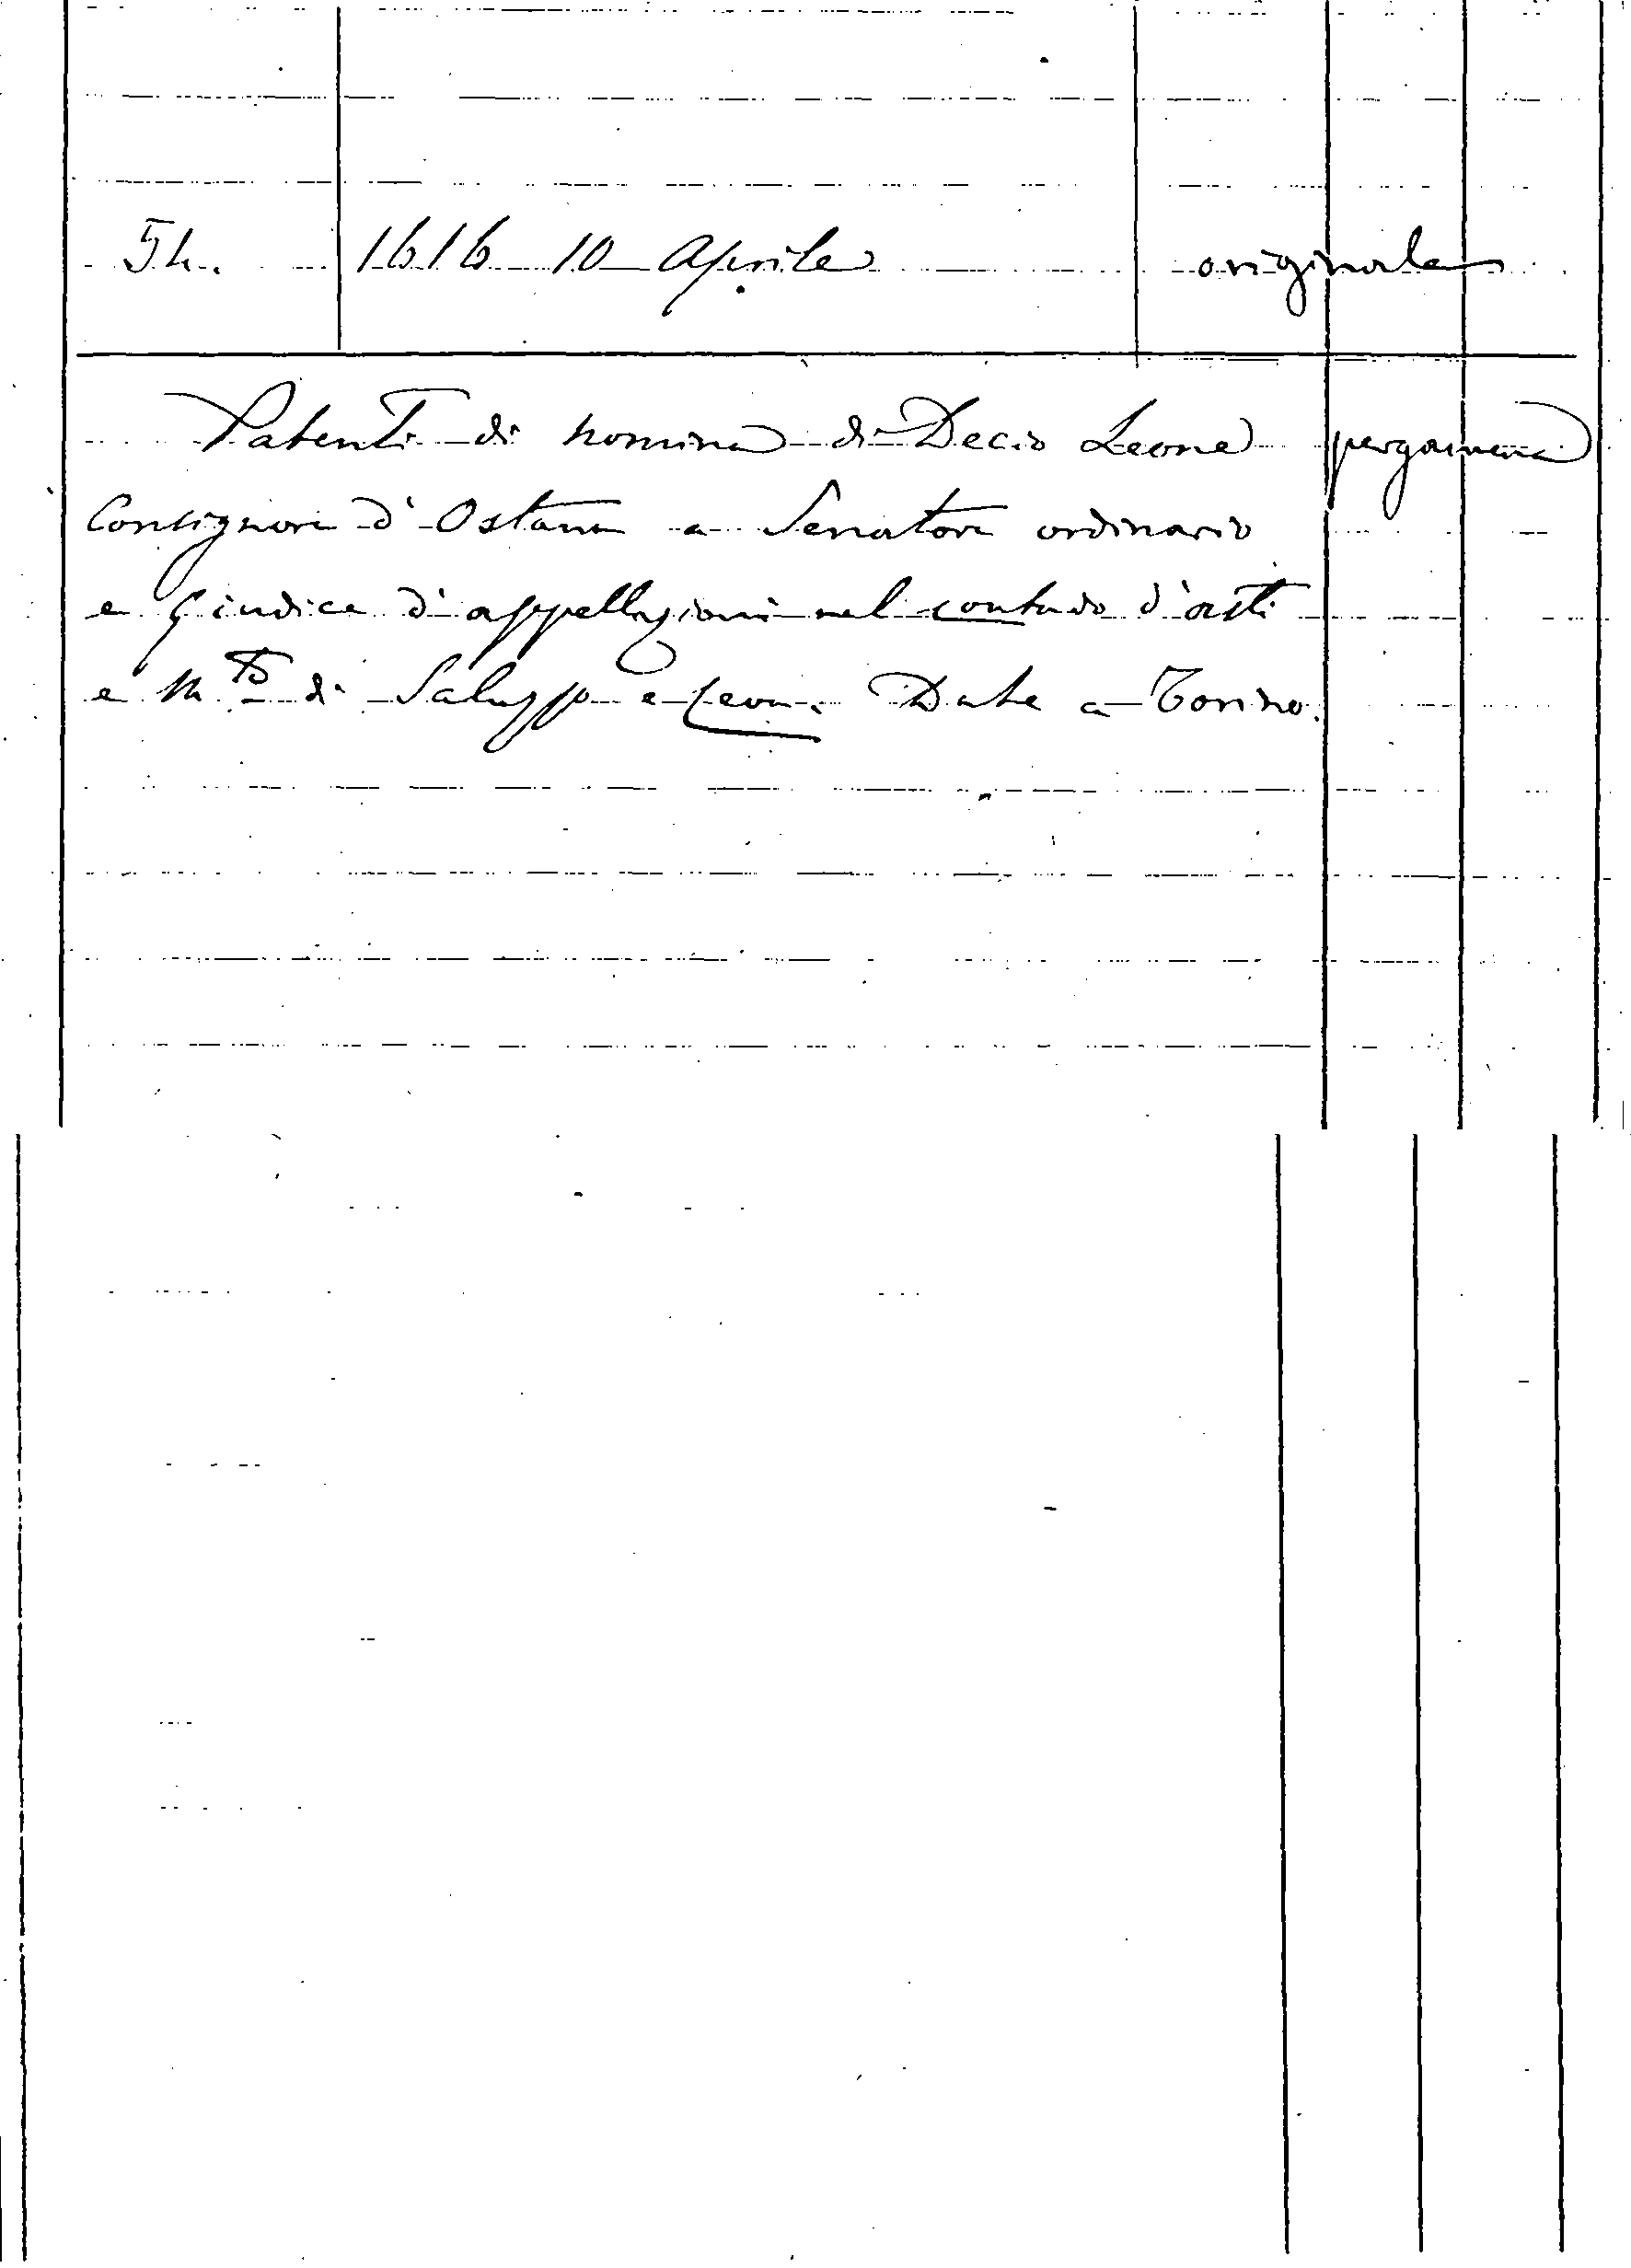 54. 1616 10 Aprile originale
Patenti di nomina di Decio Leone pergamena
Consignore d'Ostana a Senatore ordinario
e Giudice d'appellazioni nel contado d'Asti
e M.to di Saluzzo e Ceva. Date a Torino.